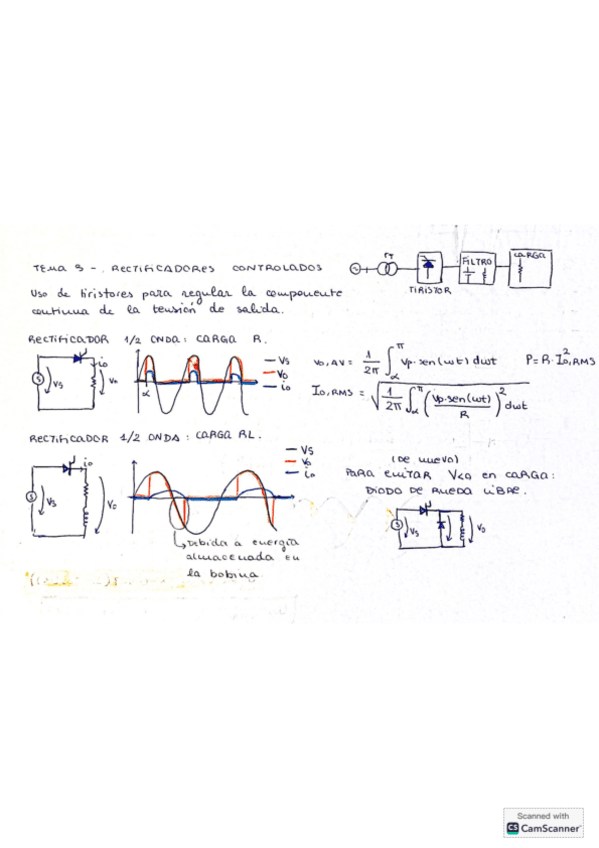 TEMA 3 -. RECTIFICADORES CONTROLADOS
Uso de tiristores para regular la componente
continua de la tensión de salida.
TIRISTOR
FILTRO
CARGA
RECTIFICADOR 1/2 ONDA: CARGA R.
io
Vs
Vo
α
— Vs
— Vo
— io
Vo,AV = 1/2π ∫α^π Vp·sen(wt) dwt P = R·I²o,RMS
Io,RMS = √(1/2π ∫α^π (Vp·sen(wt)/R)² dwt)
RECTIFICADOR 1/2 ONDA: CARGA RL.
io
Vs
Vo
— Vs
— Vo
— io
Debida a energía
almacenada en
la bobina
(De nuevo)
PARA EVITAR V<0 en CARGA:
DIODO DE RUEDA LIBRE.
Vs
Vo
Scanned with
CS CamScanner